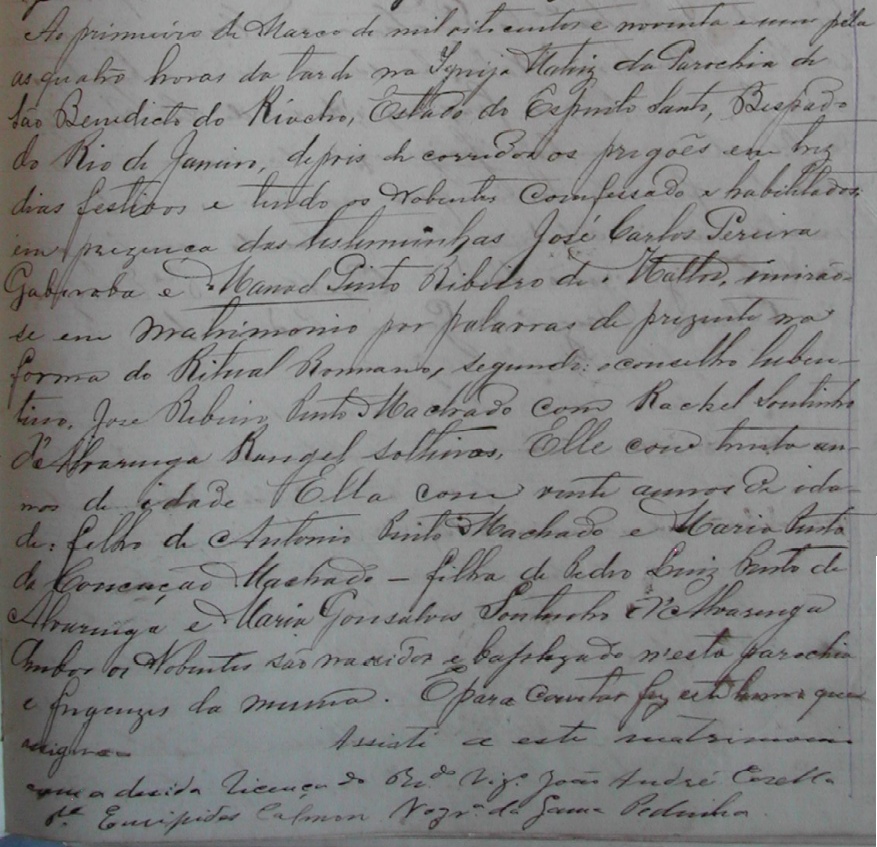 Ao primeiro de Março de mil oitocentos e noventa e um pela
as quatro horas da tarde na Igreja Matriz da Parochia de
São Benedicto do Riacho, Estado do Espirito Santo, Bispado
do Rio de Janeiro, depois de corridos os pregões em trez
dias festivos e tendo os Nobentes Comfessado e habilitados,
em prezença das testiminhas José Carlos Pereira
Gabiroba e Manoel Pinto Ribeiro de Mattos, unirão-
se em Matrimonio por palavras de prezente na
forma do Ritual Romano, segundo o conselho
tino, Jose Ribeiro Pinto Machado com Rachel Soutinho
d'Alvarenga Rangel solteiros, Elle com trinta an-
nos de idade Ella com vinte annos de ida-
de: filho de Antonio Pinto Machado e Maria Pinto
da Conceição Machado - filha de Pedro Luiz Pinto de
Alvarenga e Maria Gonsalves Soutinho d'Alvarenga
Ambos os Nobentes são nascidos e baptizado n'esta parochia
e freguezes da mesma. E para Constar fez este termo que
assigna Assisti a este matrimonio
com a devida licença do Rdo. Vigo. João André Casella
Pe. Euripides Calmon Nogra. da Gama Pedrinha